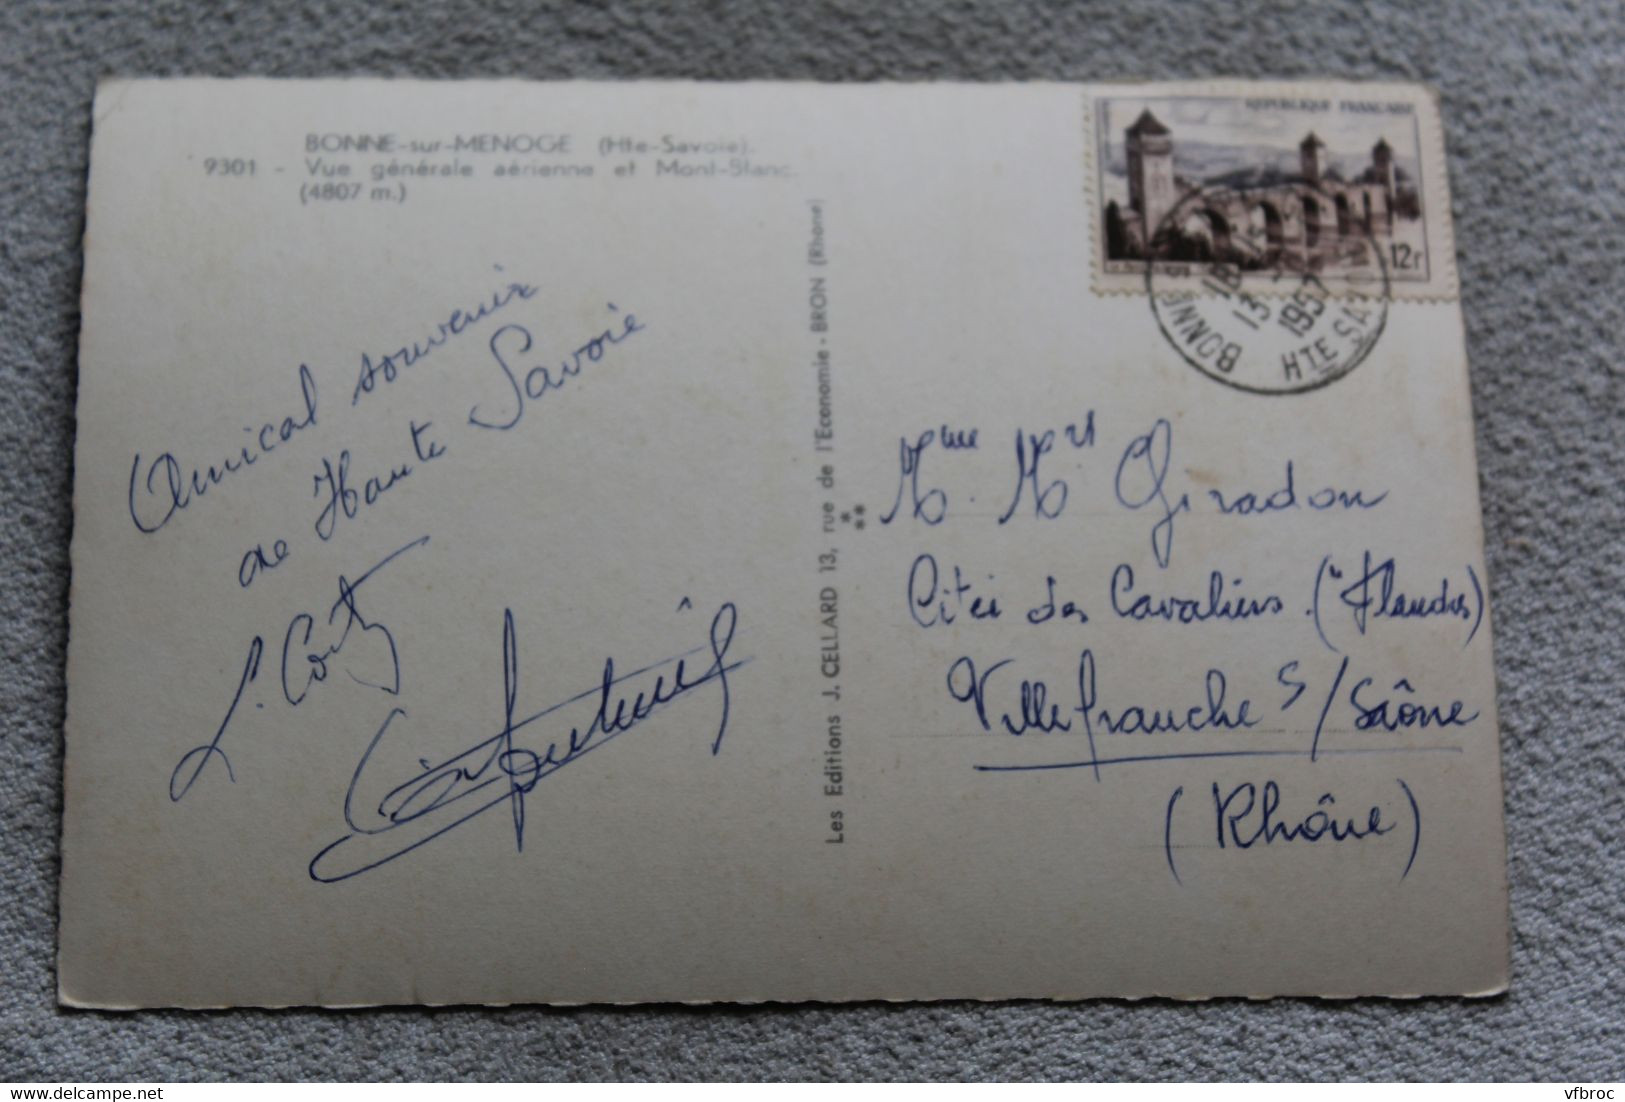 BONNE-sur-MENOGE (Hte-Savoie).
9301 - Vue générale aérienne et Mont-Blanc.
(4807 m.)
Amical souvenir
de Haute Savoie
Les Editions J. CELLARD 13, rue de l'Economie - BRON (Rhone)
REPUBLIQUE FRANCAISE
12f
BONNE
18H
13
1957
HTE SAVOIE
Mme Mr Giradon
Citéi des Cavaliers. ("Flandres)
Villefranche S/Saône
(Rhône)
vfbroc